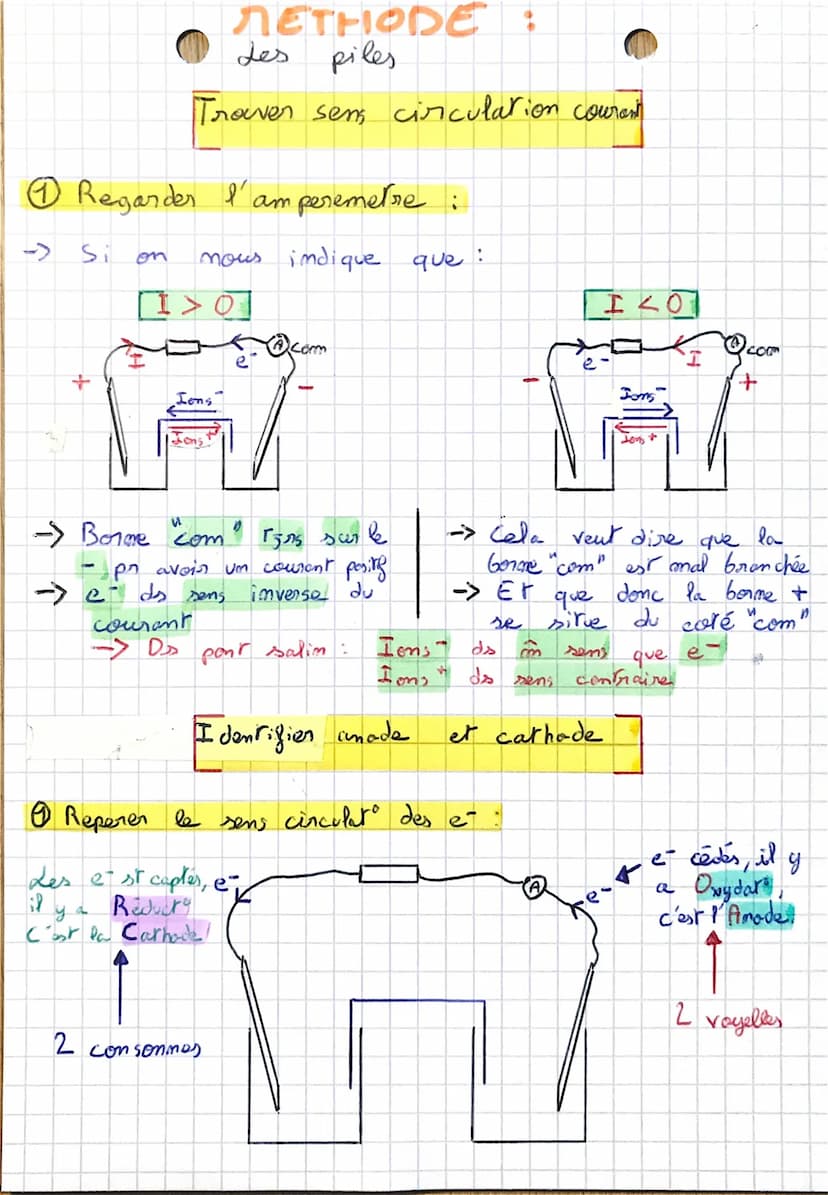 METHODE :
des piles
Trouver sens circulation courant
① Regarder l'amperemetre :
-> Si on nous indique que :
I > O
I < O
I
e-
A
com
e-
I
A
com
+
-
-
+
Ions-
Ions+
Ions-
Ions+
-> Borne "com" tjrs sur le
-, pr avoir un courant positif
-> e- ds sens inverse du
courant
-> Cela veut dire que la
borne "com" est mal branchée
-> Et que donc la borne +
se situe du coté "com"
-> Ds pont salin : Ions- ds m̂ sens que e-
Ions+ ds sens contraire
Identifier anode et cathode
① Reperer le sens circulat° des e- :
Les e- st captés,
il y a Réduct°
C'est la Cathode!
e-
A
e-
e- cédés, il y
a Oxydat°,
c'est l'Anode.
2 consonnes
2 voyelles